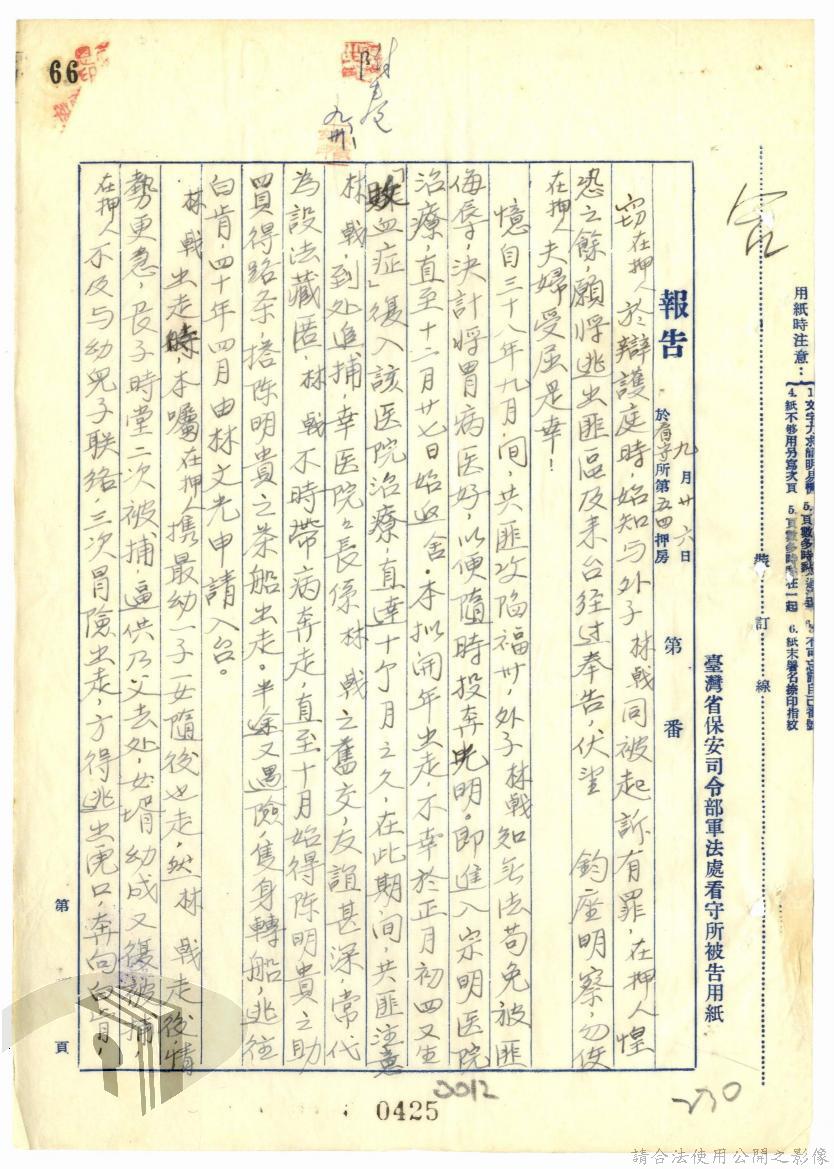 臺灣省保安司令部軍法處看守所被告用紙
用紙時注意：
1.文字力求簡明易懂
4.紙不够用另寫次頁
5.頁數多時
6.紙末署名捺印指紋
裝訂線
報告
九月廿六日
於看守所第五四押房
第番
竊在押人於辯護庭時始知与外子林戟同被起訴有罪，在押人惶
恐之餘，願將逃出匪區及来台经过奉告，伏望 鈞座明察，勿使
在押人夫婦受屈是幸！
憶自三十八年九月间，共匪攻陷福州，外子林戟知無法苟免被匪
侮辱，決計將胃病医好，以便隨時投奔光明。即進入宗明医院
治療，直至十二月廿七日始返舍。本拟開年出走，不幸於正月初四又生
「敗血症」復入該医院治療，直達十個月之久，在此期间，共匪注意
林戟，到处追捕，幸医院院長係林戟之舊交，友誼甚深，常代
為設法藏匿，林戟不時帶病奔走，直至十月始得陈明貴之助
買得路条，搭陈明貴之茶船出走。半途又遇險，隻身轉船，逃往
白肯，四十年四月由林文光申請入台。
林戟出走時，本囑在押人携最幼一子一女隨後也走，然林戟走後情
勢更急，長子時堂二次被捕，逼供乃父去处，女婿幼成又復被捕，
在押人不及与幼兒子联络，三次冒險出走，方得逃出虎口，奔向白肯，
第頁
附卷
九卅
66
0012
0425
230
請合法使用公開之影像